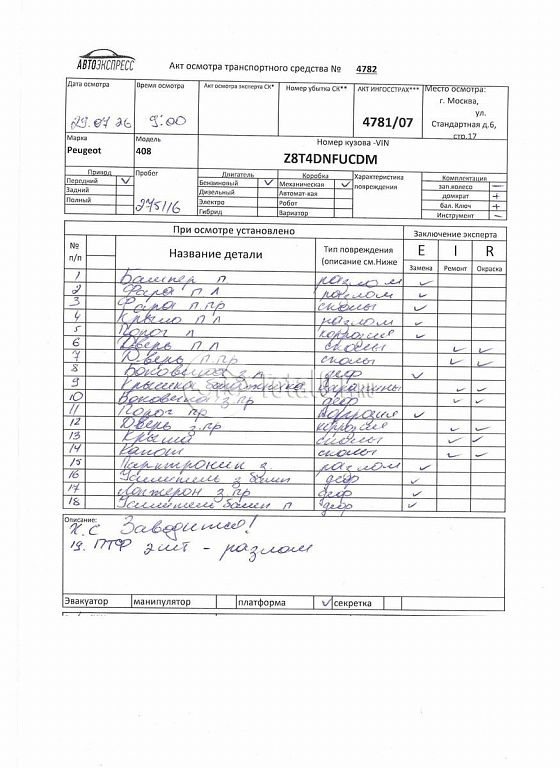 АВТОЭКСПРЕСС
Акт осмотра транспортного средства № 4782
Дата осмотра
Время осмотра
Акт осмотра эксперта СК*
Номер убытка СК**
АКТ ИНГОССТРАХ***
Место осмотра:
г. Москва,
ул.
Стандартная д.6,
стр.17
29.07 26
9:00
4781/07
Марка
Модель
Номер кузова -VIN
Peugeot
408
Z8T4DNFUCDM
Привод
Пробег
Двигатель
Коробка
Характеристика
повреждения
Комплектация
Передний
Бензиновый
Механическая
зап.колесо –
Задний
Дизельный
Автомат-кая
домкрат +
Полный
275116
Электро
Робот
бал. Ключ +
Гибрид
Вариатор
Инструмент –
При осмотре установлено
Заключение эксперта
№
п/п
Название детали
Тип повреждения
(описание см.Ниже
E I R
Замена Ремонт Окраска
1 Бампер п разлом
2 Фара п л разлом
3 Фара п.пр сколы
4 Крыло п л разлом
5 Порог л коррозия
6 Дверь п л сколы
7 Дверь п пр сколы
8 Боковина з л деф
9 Крышка багажника царапины
10 Боковина з.пр деф
11 Порог пр коррозия
12 Дверь з.пр коррозия
13 Крыша сколы
14 Капот сколы
15 Парктроник з разлом
16 Усилитель з бамп деф
17 Лонжерон з.пр деф
18 Усилитель бамп п деф
Описание:
Х.С Заводится!
19. ПТФ 2шт - разлом
Эвакуатор манипулятор платформа секретка